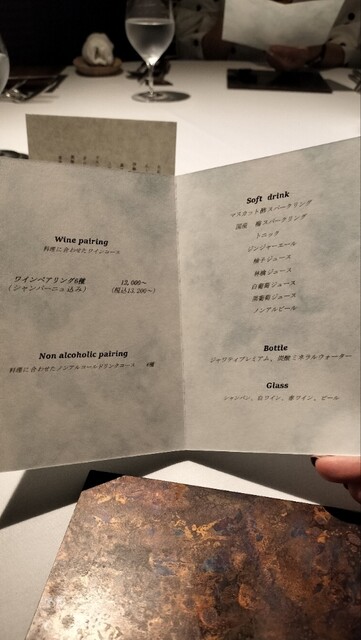 Wine pairing
料理に合わせたワインコース
ワインペアリング6種 12,000~
(シャンパーニュ込み) (税込13,200~)
Non alcoholic pairing
料理に合わせたノンアルコールドリンクコース 6種
Soft drink
マスカット酢スパークリング
国産 梅スパークリング
トニック
ジンジャーエール
柚子ジュース
林檎ジュース
白葡萄ジュース
赤葡萄ジュース
ノンアルビール
Bottle
ジャワティプレミアム、炭酸ミネラルウォーター
Glass
シャンパン、白ワイン、赤ワイン、ビール